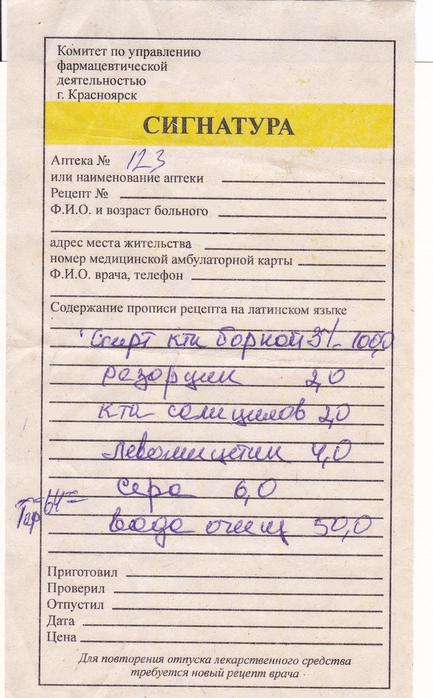 Комитет по управлению
фармацевтической
деятельностью
г. Красноярск
СИГНАТУРА
Аптека № 123
или наименование аптеки
Рецепт №
Ф.И.О. и возраст больного
адрес места жительства
номер медицинской амбулаторной карты
Ф.И.О. врача, телефон
Содержание прописи рецепта на латинском языке
Спирт кты борной 3%
резорцин 2,0
кта салицилов 2,0
левомицетин 4,0
Сера 6,0
вода очищ 50,0
Приготовил
Проверил
Отпустил
Дата
Цена
Для повторения отпуска лекарственного средства
требуется новый рецепт врача